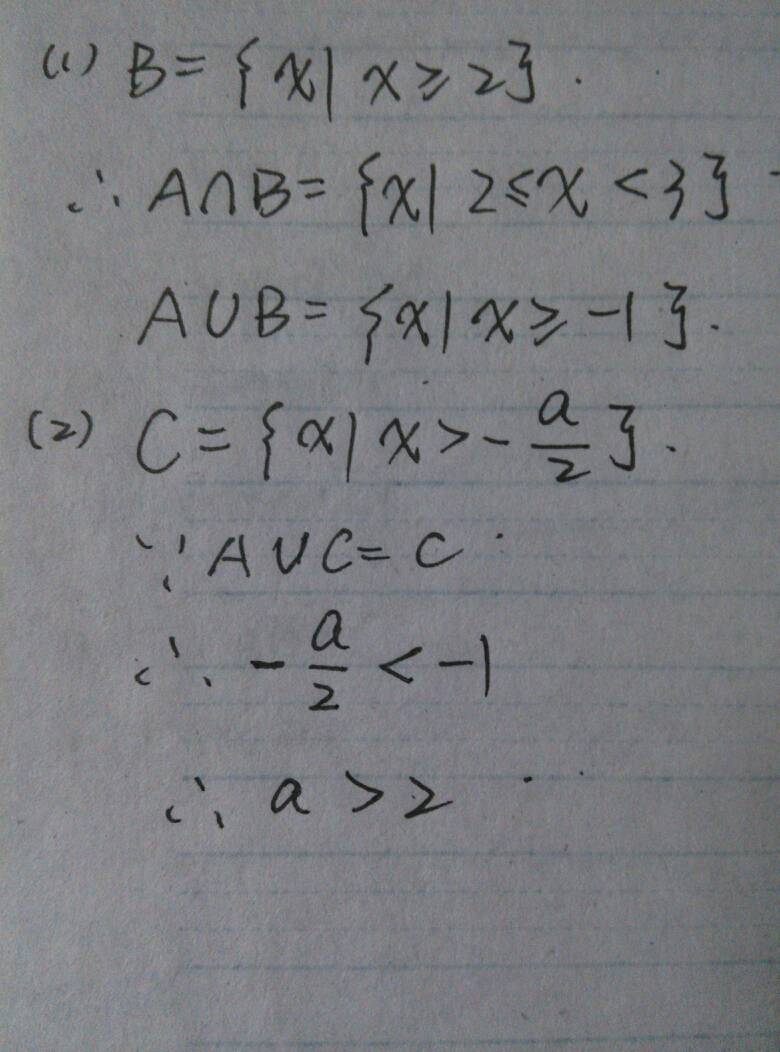 (1) B={x| x≥2}.
∴ A∩B={x| 2≤x<3}
A∪B={x| x≥-1}.
(2) C={x| x>-a/2}.
∵ A∪C=C
∴ -a/2<-1
∴ a>2